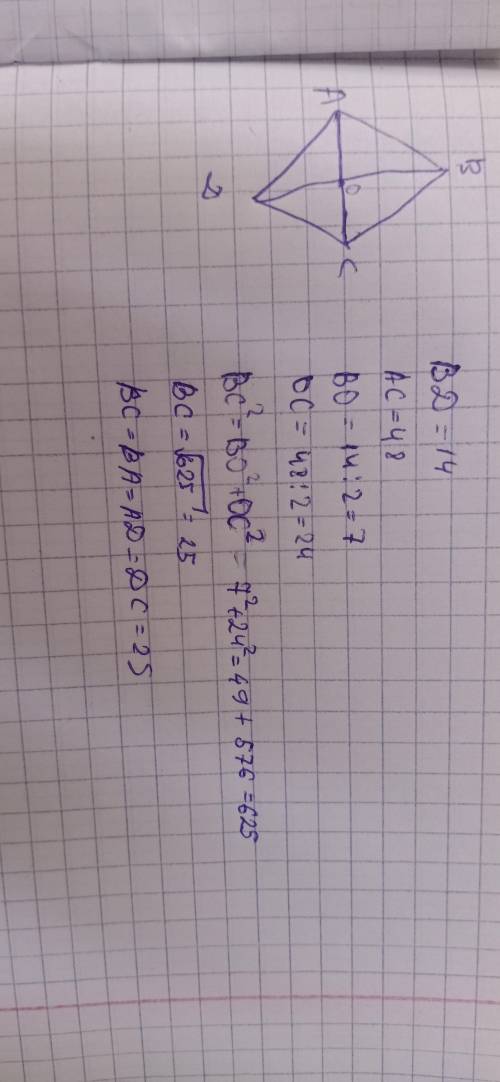 A
B
O
D
C
BD = 14
AC = 48
BO = 14:2 = 7
OC = 48:2 = 24
BC² = BO² + OC² = 7² + 24² = 49 + 576 = 625
BC = √625 = 25
BC = BA = AD = DC = 25